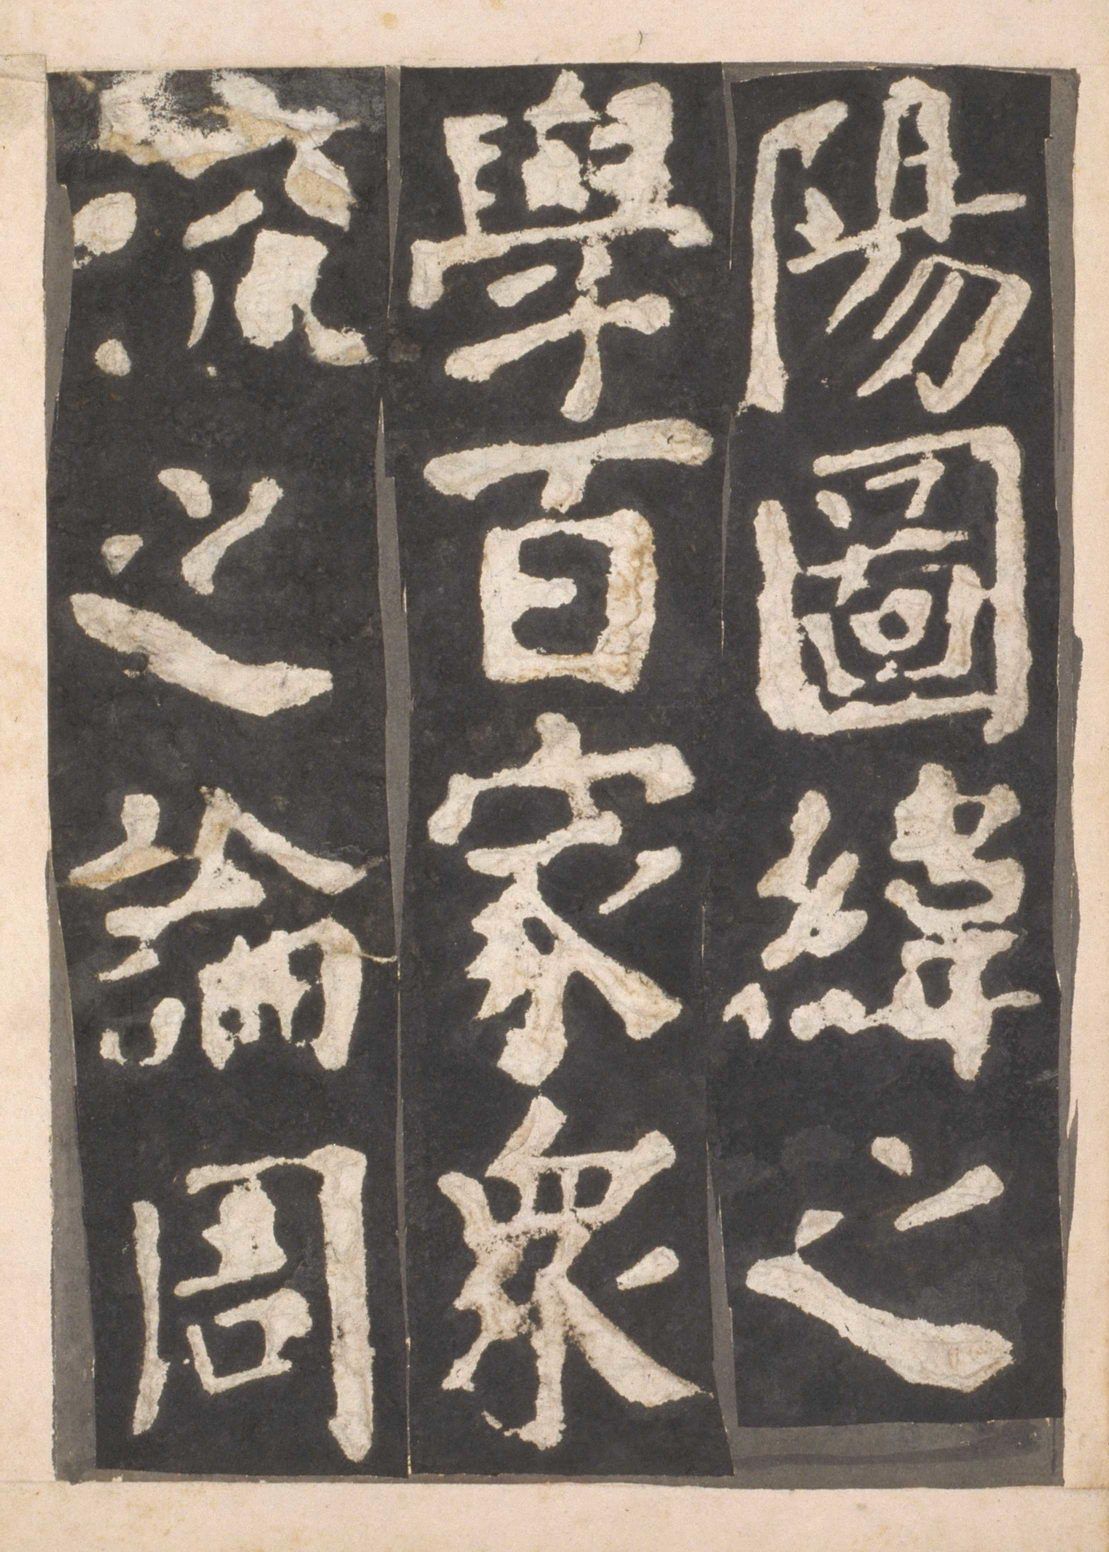 陽圖緯之
學百家衆
流之論周